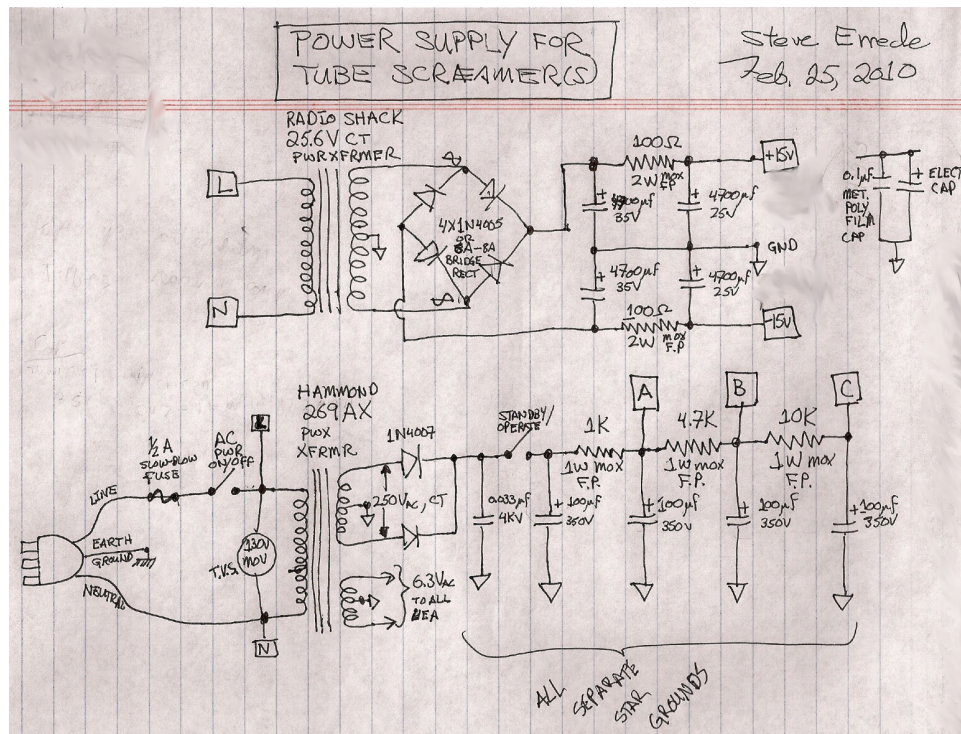 POWER SUPPLY FOR
TUBE SCREAMER(S)
Steve
Feb. 25, 2010
RADIO SHACK
25.6V CT
PWR XFRMER
L
N
4X1N4005
OR
6A-8A
BRIDGE
RECT
100Ω
2W MOX
F.P.
+15V
+
4700µf
35V
+
4700µf
25V
GND
+
4700µf
35V
+
4700µf
25V
100Ω
2W MOX
F.P
-15V
0.1µf
MET.
POLY
FILM
CAP
+ ELECT
CAP
HAMMOND
269AX
PWR
XFRMR
½ A
SLOW-BLOW
FUSE
AC
PWR
ON/OFF
LINE
EARTH
GROUND
NEUTRAL
T.V.S.
130V
MOV
N
1N4007
250VAC, CT
6.3VAC
TO ALL
HEA
STANDBY/
OPERATE
0.033µf
4KV
+
100µf
350V
1K
1W MOX
F.P.
A
+
100µf
350V
4.7K
1W MOX
F.P.
B
+
100µf
350V
10K
1W MOX
F.P.
C
+
100µf
350V
ALL SEPARATE STAR GROUNDS